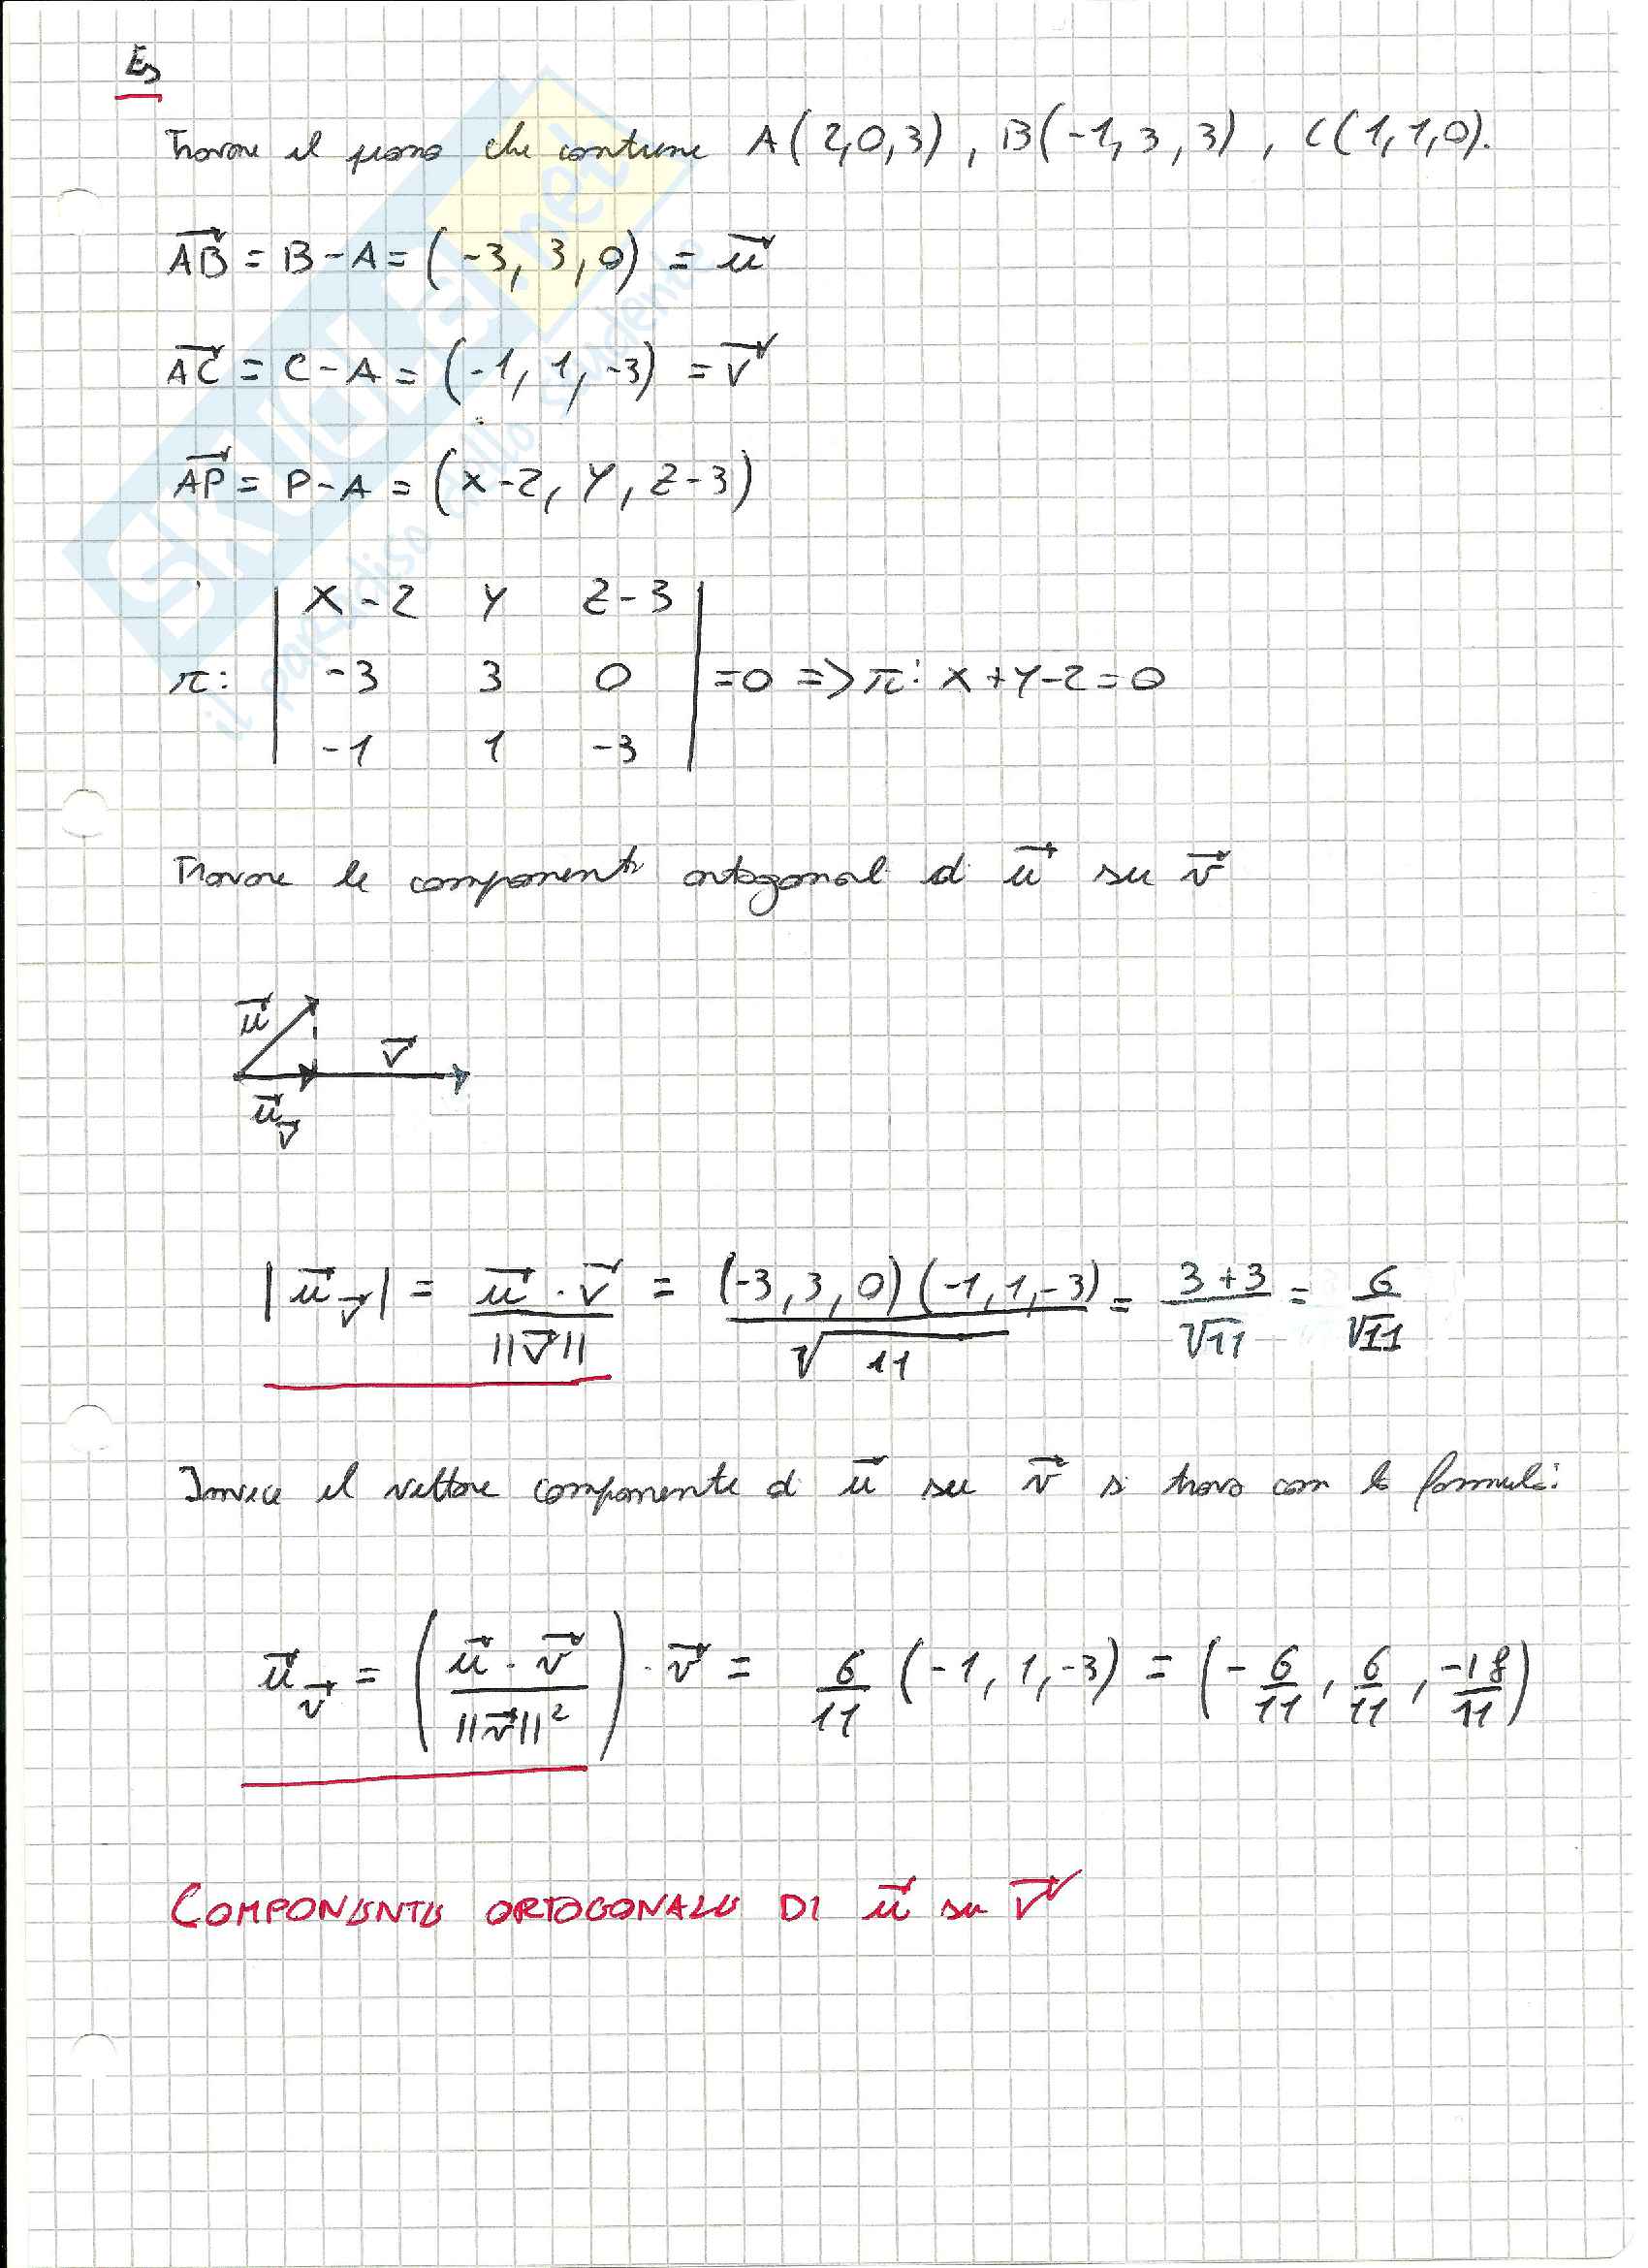 Es
Trovare il piano che contiene A(2,0,3), B(-1,3,3), C(1,1,0).
SKUOLA.net
il paradiso dello studente
AB = B-A = (-3, 3, 0) = u
AC = C-A = (-1, 1, -3) = v
AP = P-A = (x-2, y, z-3)
x-2 y z-3
π: -3 3 0 =0 => π: x+y-2=0
-1 1 -3
Trovare le componenti ortogonali di u su v
u
v
u v
|u v| = u · v / ||v|| = (-3,3,0)(-1,1,-3) / √11 = 3+3 / √11 = 6 / √11
Invece il vettore componente di u su v si trova con la formula:
u v = (u · v / ||v||²) · v = 6/11 (-1, 1, -3) = (-6/11, 6/11, -18/11)
COMPONENTE ORTOGONALE DI u su v